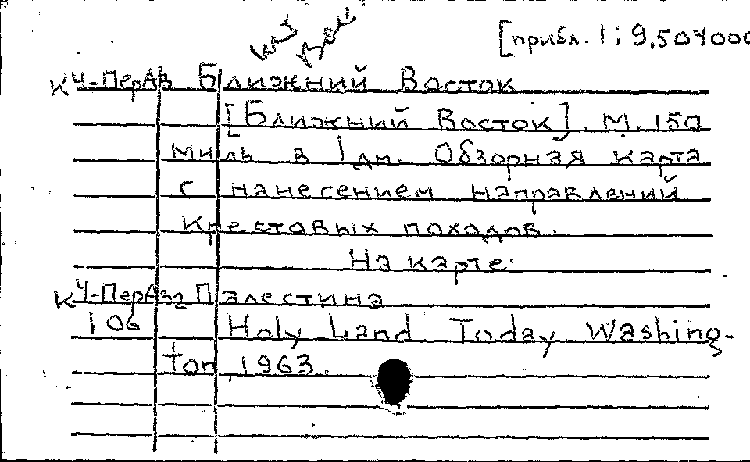 [прибл. 1:9,504000
КЧ-ПерАз Ближний Восток
[Ближний Восток]. М. 150
миль в 1 дм. Обзорная карта
с нанесением направлений
Крестовых походов.
На карте:
КЧ-ПерАз2 Палестина
106 Holy Land Today Washing-
ton, 1963.